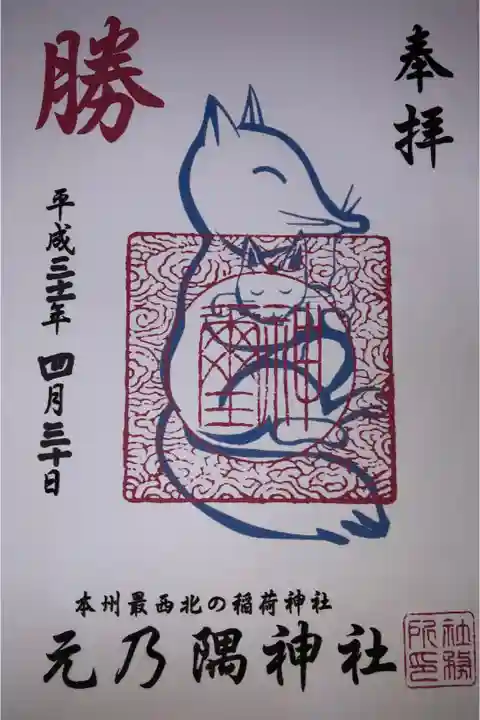 奉拝
勝
平成三十一年四月三十日
神璽
本州最西北の稲荷神社
元乃隅神社
社務所印